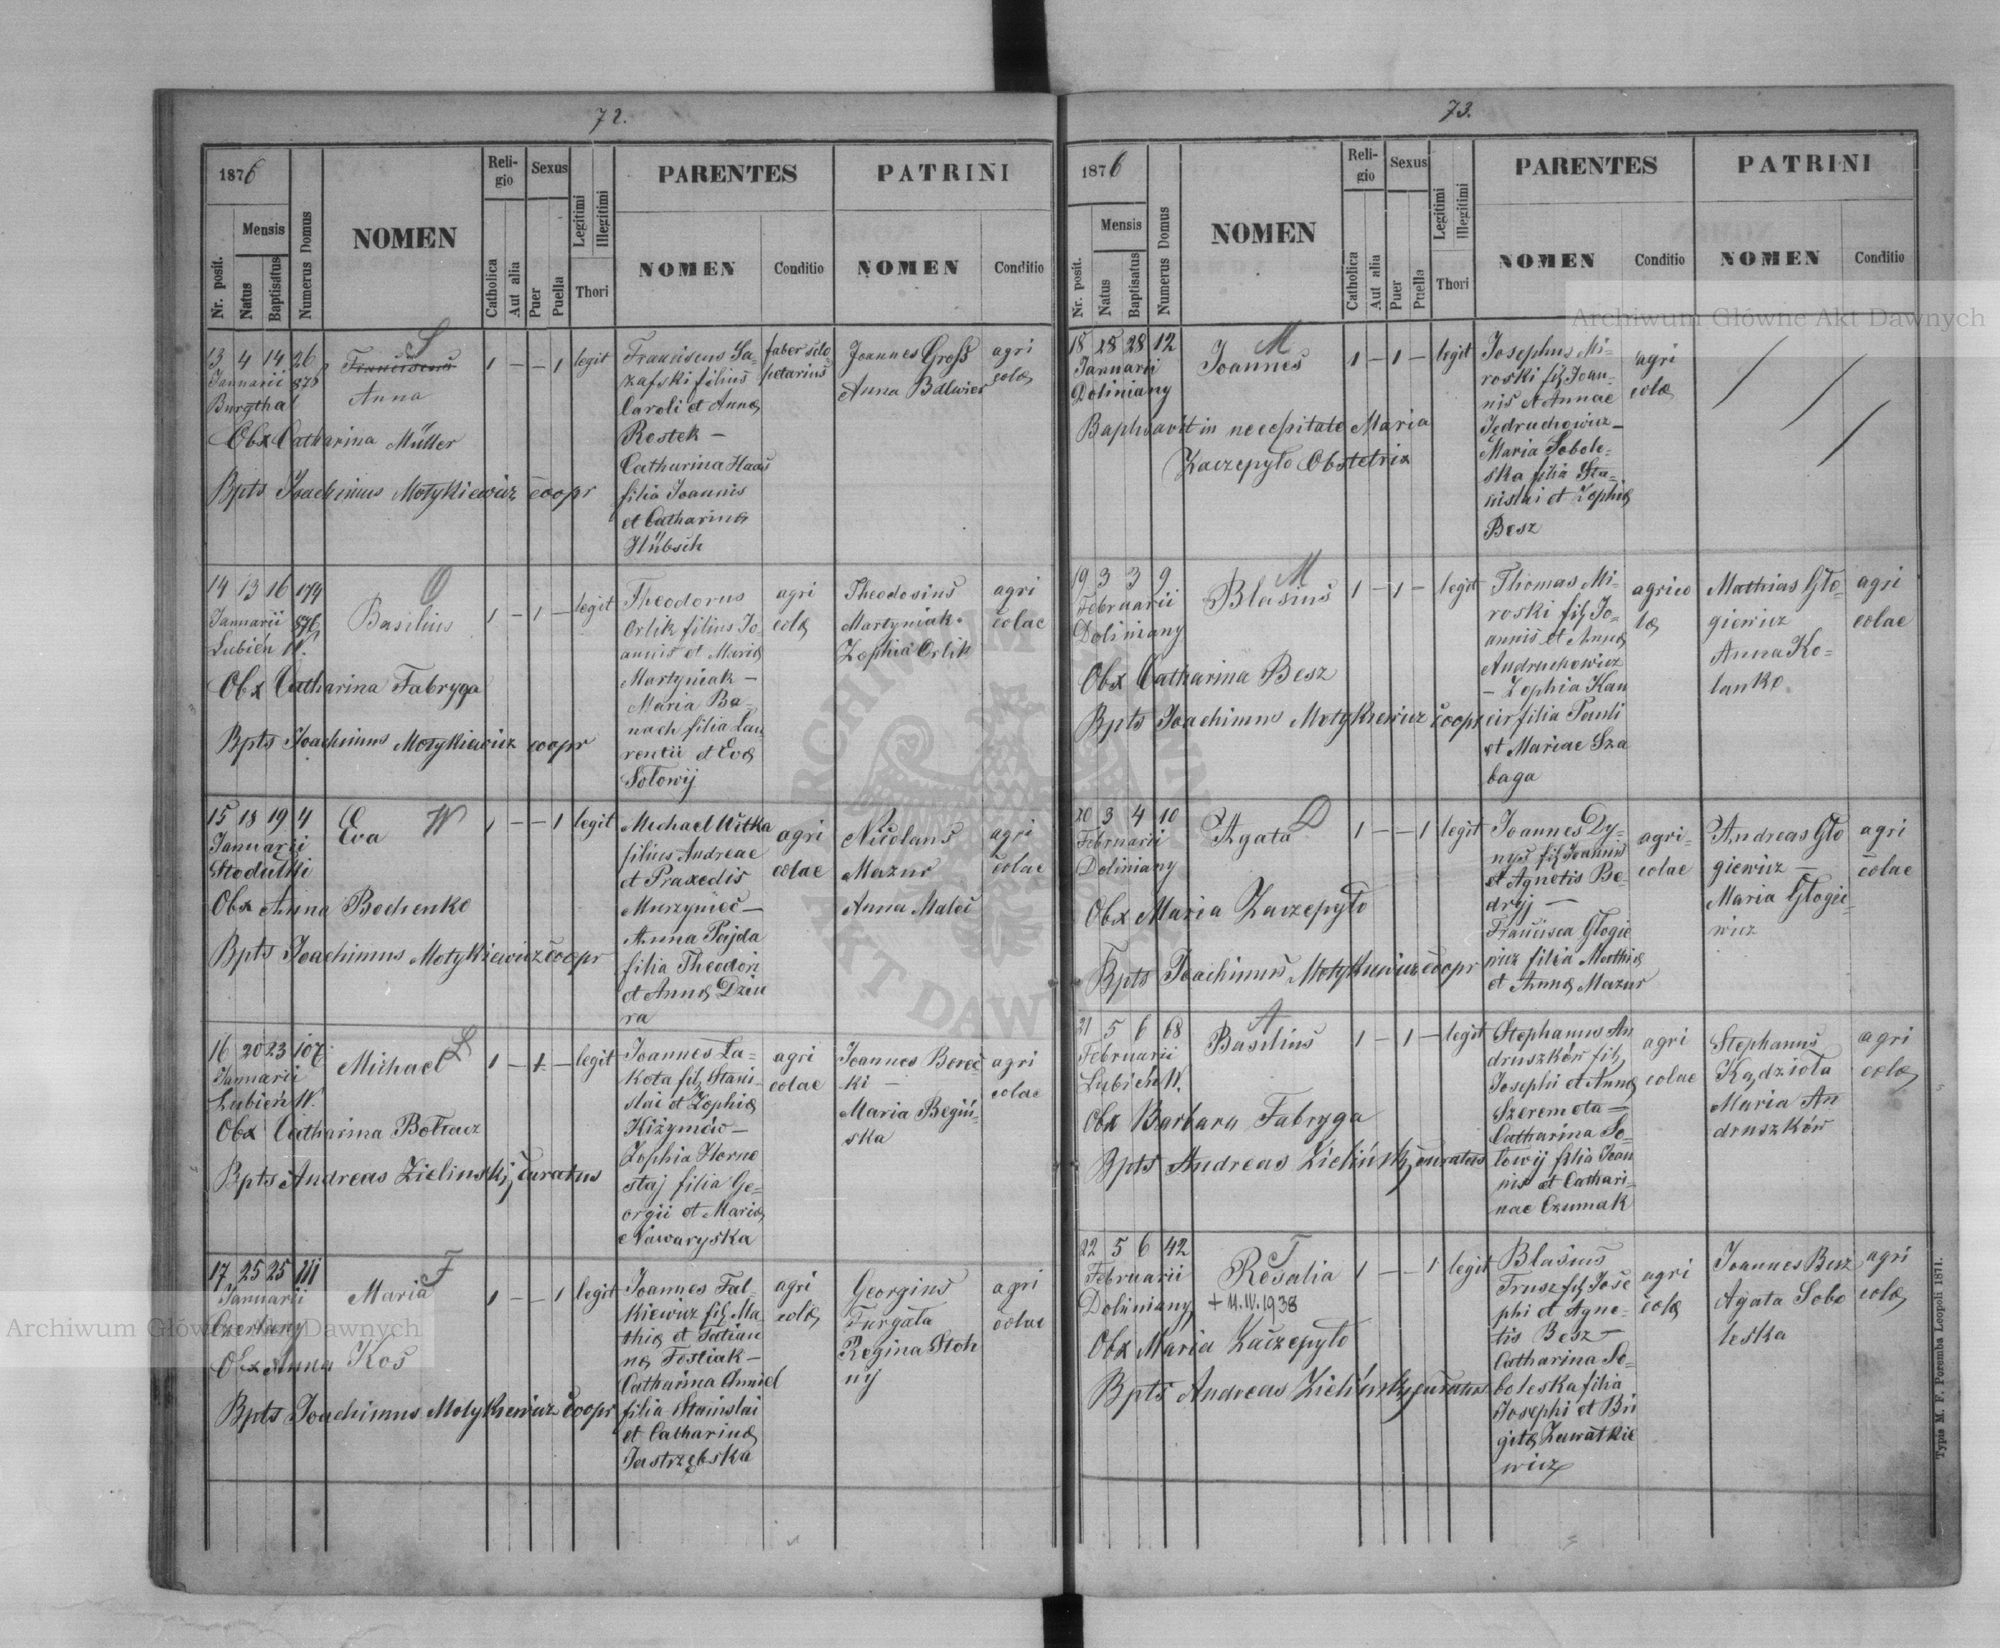 72.
1876
Mensis
Nr. posit.
Natus
Baptisatus
Numerus Domus
NOMEN
Religio
Catholica
Aut alia
Sexus
Puer
Puella
Legitimi
Illegitimi
Thori
PARENTES
NOMEN
Conditio
PATRINI
NOMEN
Conditio
13 4 14 26
Januarii 876
Burgthal
S
Franciscus
Anna
1 — — 1 legit
Franciscus Sa-
zafski filius
Caroli et Annæ
Rostek —
Catharina Haas
filia Joannis
et Catharinæ
Hübsch
faber sclo
petarius
Joannes Groß
Anna
agri
colæ
Obx Catharina Müller
Bpts Joachimus Motykiewicz coopr
14 13 16 174
Januarii 876
Lubień W.
O
Basilius
1 — 1 — legit
Theodorus
Orlik filius Jo-
annis et Mariæ
Martyniak —
Maria Ba-
nach filia Lau-
rentii et Evæ
Sołowij
agri
colæ
Theodosius
Martyniak.
Zophia Orlik
agri
colae
Obx Catharina Fabryga
Bpts Joachimus Motykiewicz coopr
15 18 19 4
Januarii
Stodułki
Eva
W
1 — — 1 legit
Michael Witka
filius Andreae
et Praxedis
Murzyniec —
Anna Pajda
filia Theodori
et Annæ Dziu
ra
agri
colae
Nicolaus
Mazur
Anna Maleć
agri
colae
Obx Anna Bochenko
Bpts Joachimus Motykiewicz coopr
16 20 23 107
Januarii
Lubień W.
Michael
Ł
1 — 1 — legit
Joannes Ła-
kota fil. Stani-
slai et Zophiæ
Hiżymów —
Zophia Horne
staj filia Ge-
orgii et Mariæ
Nawaryska
agri
colae
Joannes Borec-
ki —
Maria Begiń-
ska
agri
colae
Obx Catharina Botracz
Bpts Andreas Zielinskj, curatus
17 25 25 111
Januarii
Czerlany
Maria
F
1 — — 1 legit
Joannes Fal-
kiewicz fil. Ma-
thiæ et Tatian
næ Fostiak —
Catharina
filia Stanislai
et Catharinæ
Jastrzębska
agri
colæ
Georgius
Furgała
Regina Stoh
nij
agri
colae
Obx Anna Kos
Bpts Joachimus Motykiewicz coopr
73.
1876
Mensis
Nr. posit.
Natus
Baptisatus
Numerus Domus
NOMEN
Religio
Catholica
Aut alia
Sexus
Puer
Puella
Legitimi
Illegitimi
Thori
PARENTES
NOMEN
Conditio
PATRINI
NOMEN
Conditio
18 28 28 12
Januarii
Doliniany
M
Joannes
1 — 1 — legit
Josephus Mi-
roski fil. Joan-
nis et Annae
Jędruchowicz —
Maria Sobole-
ska filia Sta-
nislai et Zophiæ
Besz
agri
colæ
Baptisavit in necessitate Maria
Zaczepyło Obstetrix
19 3 3 9
Februarii
Doliniany
M
Blasius
1 — 1 — legit
Thomas Mi-
roski fil. Jo-
annis et Annæ
Andruchowicz
— Zophia Kau
cir filia Pauli
et Mariae Sza
baga
agrico
læ
Mathias Gło-
giewicz
Anna Ko-
lanko
agri
colae
Obx Catharina Besz
Bpts Joachimus Motykiewicz coopr
20 3 4 10
Februarii
Doliniany
Agata
D
1 — — 1 legit
Joannes Dy-
nys fil. Joannis
et Agnetis Be-
dryj —
Francisca Głogie
wicz filia Mathiæ
et Annæ Mazur
agri-
colae
Andreas Gło
giewicz —
Maria Głogie-
wicz
agri
colae
Obx Maria Zaczepyło
Bpts Joachimus Motykiewicz coopr
21 5 6 68
Februarii
Lubień W.
A
Basilius
1 — 1 — legit
Stephanus An
druszków fil.
Josephi et Annæ
Szeremeta —
Catharina So-
łowij filia Joan
nis et Cathari-
nae Czumak
agri
colae
Stephanus
Kądzioła
Maria An
druszków
agri
colæ
Obx Barbara Fabryga
Bpts Andreas Zieliński, curatus
22 5 6 42
Februarii
Doliniany
T
Rosalia
+ 11.IV.1938
1 — — 1 legit
Blasius
Trusz fil. Jose
phi et Agne-
tis Besz —
Catharina So-
boleska filia
Josephi et Bri
gitæ Zawałkie
wicz
agri
colæ
Joannes Besz
Agata Sobo
leska
agri
colæ
Obx Maria Zaczepyło
Bpts Andreas Zieliński, curatus
Typis M. F. Poremba Leopoli 1871.
Archiwum Główne Akt Dawnych
Archiwum Główne Akt Dawnych